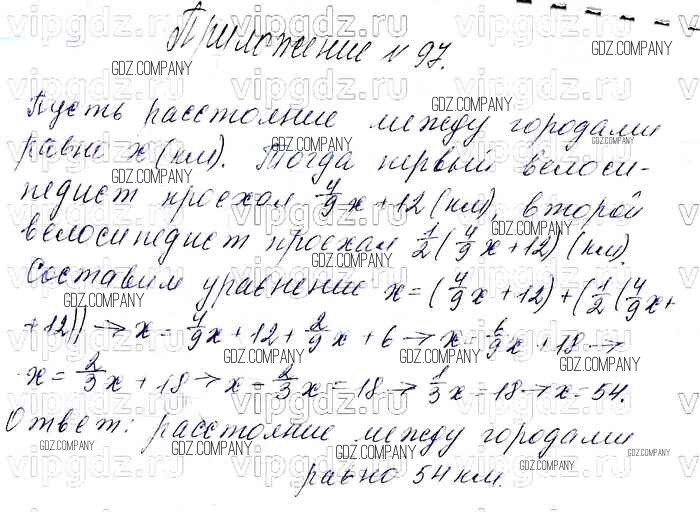 Приложение № 97.
Пусть расстояние между городами
равно x (км). Тогда первый велоси-
педист проехал 4/9x + 12 (км), второй
велосипедист проехал 1/2(4/9x + 12) (км).
Составим уравнение x = (4/9x + 12) + (1/2(4/9x +
+ 12)) → x = 4/9x + 12 + 2/9x + 6 → x = 6/9x + 18 →
x = 2/3x + 18 → x - 2/3x = 18 → 1/3x = 18 → x = 54.
Ответ: расстояние между городами
равно 54 км.